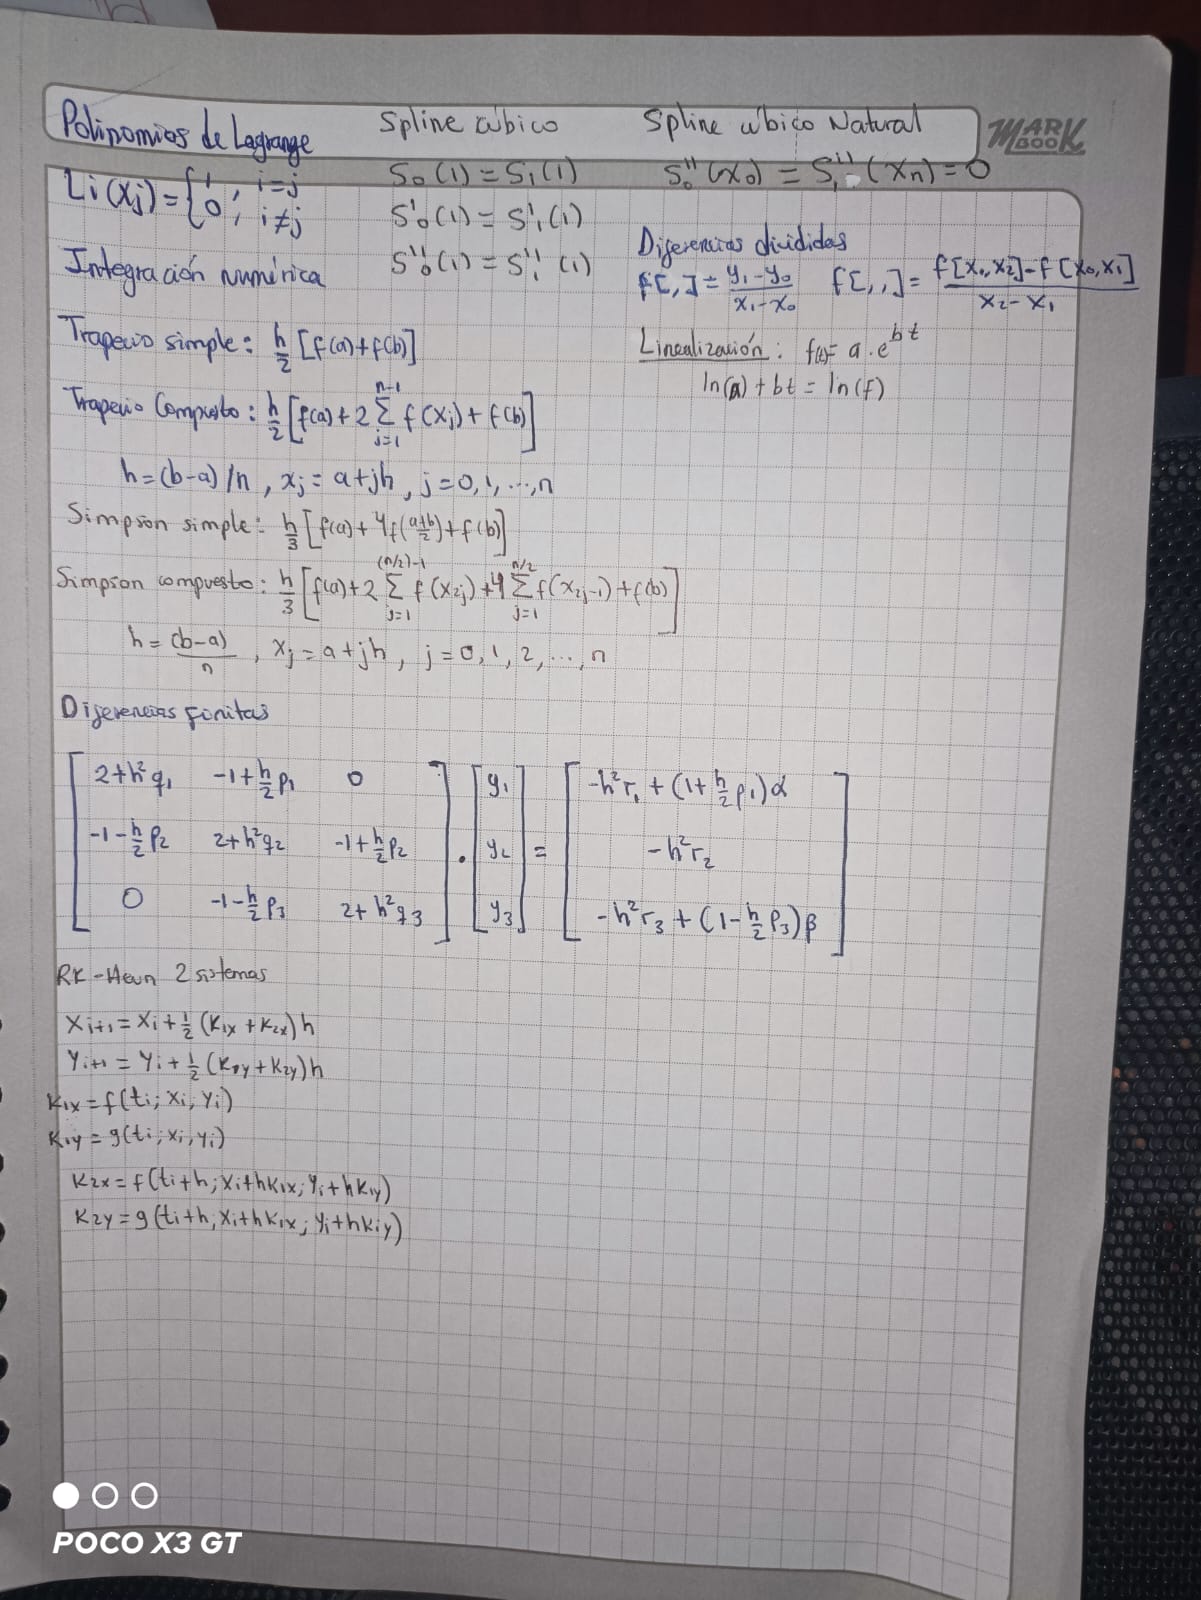 Polinomios de Lagrange
Li(xj) = { 1, i=j
0, i≠j
Spline cúbico
S0(1) = S1(1)
S'0(1) = S'1(1)
S''0(1) = S''1(1)
Spline cúbico Natural
S0''(x0) = S1''(xn) = 0
MARK BOOK
Diferencias divididas
f[,] = y1-y0 / x1-x0   f[,,] = f[x1,x2]-f[x0,x1] / x2-x1
Linealización: f(t) = a.e^bt
ln(a) + bt = ln(f)
Integración numérica
Trapecio simple: h/2 [f(a)+f(b)]
Trapecio Compuesto: h/2 [f(a)+2 Σ_{j=1}^{n-1} f(xj) + f(b)]
h=(b-a)/n, xj = a+jh, j=0,1,...,n
Simpson simple: h/3 [f(a)+4f(a+b/2)+f(b)]
Simpson compuesto: h/3 [f(a)+2 Σ_{j=1}^{(n/2)-1} f(x2j)+4 Σ_{j=1}^{n/2} f(x2j-1)+f(b)]
h = (b-a)/n, xj = a+jh, j=0,1,2,...,n
Diferencias finitas
[ 2+h²q1   -1+h/2 p1   0 ] [ y1 ] [ -h²r1 + (1+h/2 p1)α ]
[ -1-h/2 p2   2+h²q2   -1+h/2 p2 ] . [ y2 ] = [ -h²r2 ]
[ 0   -1-h/2 p3   2+h²q3 ] [ y3 ] [ -h²r3 + (1-h/2 p3)β ]
RK-Heun 2 sistemas
xi+1 = xi + 1/2 (K1x + K2x)h
yi+1 = yi + 1/2 (K1y + K2y)h
K1x = f(ti; xi, yi)
K1y = g(ti; xi, yi)
K2x = f(ti+h; xi+hK1x; yi+hK1y)
K2y = g(ti+h; xi+hK1x; yi+hK1y)
POCO X3 GT